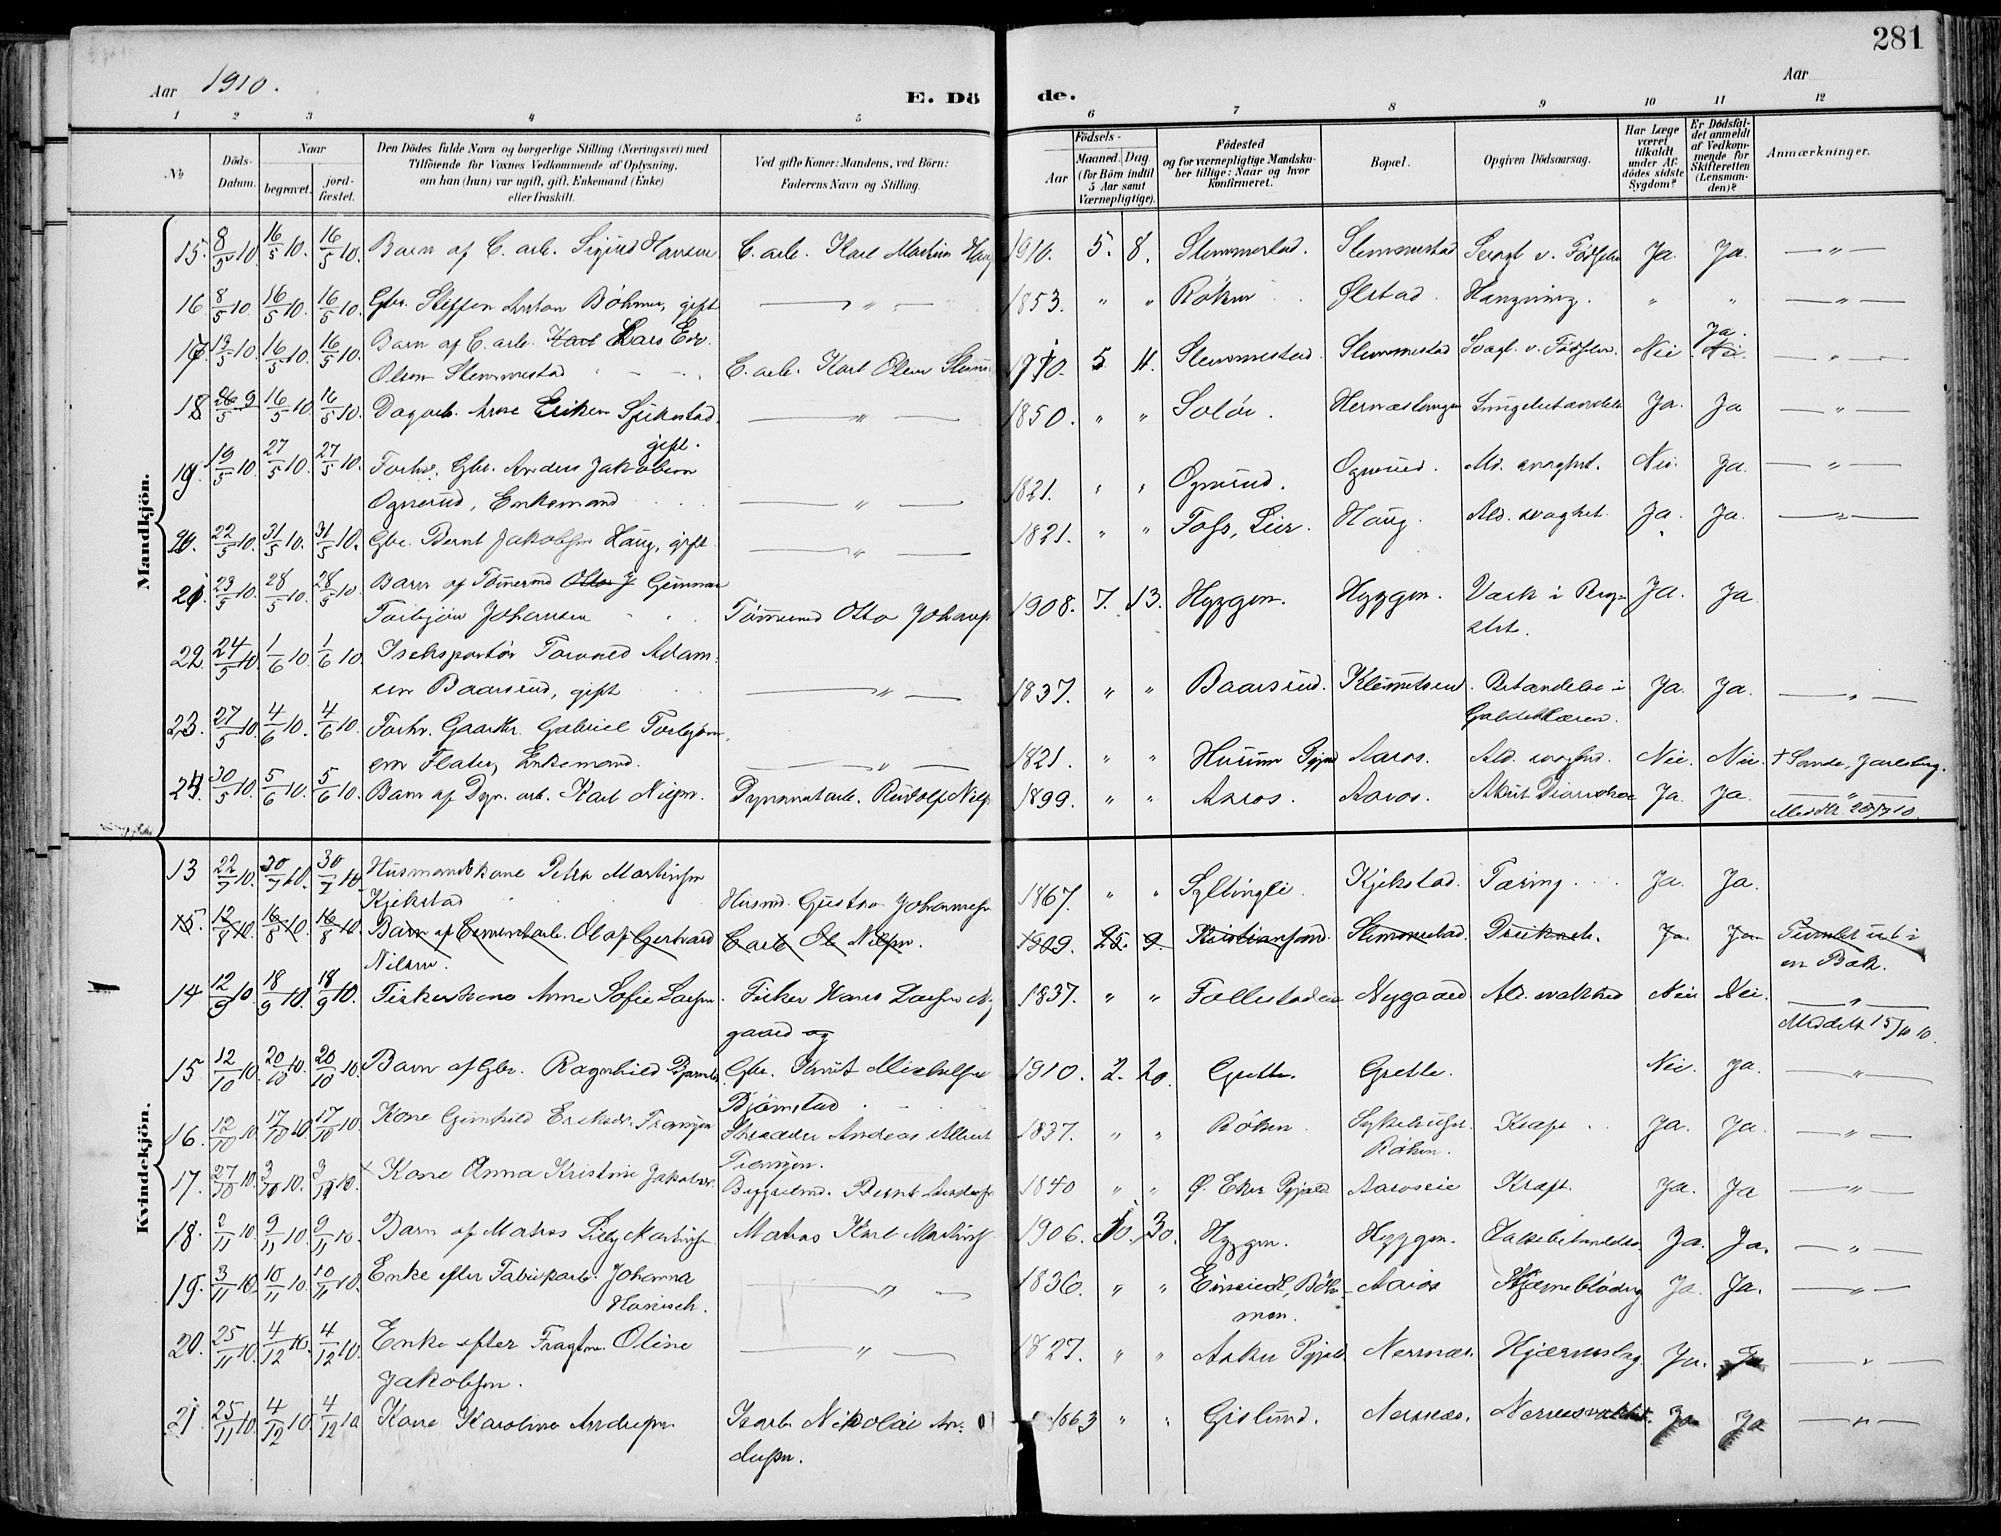 281
Aar 1910.
E. Dö
de.
Aar
1 2 3 4 5 6 7 8 9 10 11 12
No
Döds-Datum.
Naar
begravet. jord-fæstet.
Den Dödes fulde Navn og borgerlige Stilling (Næringsvei) med
Tilföiende for Voxnes Vedkommende af Oplysning,
om han (hun) var ugift, gift, Enkemand (Enke)
eller fraskilt.
Ved gifte Koner: Mandens, ved Börn:
Faderens Navn og Stilling.
Födsels-
Aar
Maaned. Dag
(for Börn indtil
5 Aar samt
Værnepligtige).
Födested
og for værnepligtige Mandska-
ber tillige: Naar og hvor
konfirmeret.
Bopæl.
Opgiven Dödsaarsag.
Har Læge
været
tilkaldt
under Af-
dödes sidste
Sygdom?
Er Dödsfal-
det anmeldt
af Vedkom-
mende for
Skifteretten
(Lensman-
den)?
Anmærkninger.
Mandkjön.
15. 8/5 10. 16/5 10. 16/5 10. Barn af C. arb. Sigurd Hansen C. arb. Karl Martin 1910. 5. 8. Slemmestad. Slemmestad Svagt v. Ja. Ja. — " —
16 8/5 10. 16/5 10. 16/5 10. Gbr. Steffen Anton Böhmer, gift — " — 1853. " " Röken Ølstad. Hængning. " " — " —
17. 13/5 10. 16/5 10. 16/5 10. Barn af C. arb. Karl Lars
Olsen Slemmestad C. arb. Karl Olsen 1910. 5 11. Slemmestad. Slemmestad Svagl. v. Nei Ja. Nei. — " —
18 16/5 10. 16/5 10. Dagarb. Arne Eriksen Gjekstad, gift. — " — 1850. " " Solör. Ja. Ja — " —
19. 19/5 10. 27/5 10. 27/5 10. Forhv. Gbr. Anders Jakobsen
Ognerud, Enkemand — " — 1821. " " Ognerud. Ognerud. Ald. svaghet. Nei. Ja. — " —
20. 22/5 10. 31/5 10. 31/5 10. Gbr. Bernt Jakobsen Haug, gift — " — 1821. " " Foss, Lier. Haug. Ald. svaghet. Ja. Ja. — " —
21. 23/5 10. 28/5 10. 28/5 10. Barn af Tømmermd Otto J Gunnar
Torbjörn Johansen Tømmermd Otto 1908. 7. 13. Hyggen. Hyggen. Værk i Ja. Ja.
22 24/5 10. 1/6 10. 1/6 10. Iseksportör Torvald Adam-
sen Baarsrud, gift — " — 1837. " " Baarsrud. Klemmetsrud. Betændelse i
Galdeblæren. Ja. Ja. — " —
23. 27/5 10. 4/6 10. 4/6 10. Forhv. Gaardbr. Gabriel Torbjörn-
sen Flater, Enkemand. — " — 1821. " " Hurum Pgjæld Aaros. Ald. svaghed. Nei. Nei. † Sande, Jarlsberg.
24. 30/5 10. 5/6 10. 5/6 10. Barn af Dyn. arb. Karl Nilsen. Dynamitarb. Rudolf 1899. " " Aaros. Aaros. Akut Ja. Ja. — " —
Kvindekjön.
13 22/7 10. 30/7 10. 30/7 10 Husmandskone Petra Martinsen
Kjekstad Husmd. Gustav 1867. " " Syltingli. Kjekstad. Tæring. Ja. Ja.
15. 12/8 10. 16/8 10. 16/8 10. Barn af Cementarb. Olaf Gerhard
Nilsen. C arb. Ol. Nilsen. 1909. 25. 9. Kristiansand. Slemmestad. Druknet. Ja. Ja. Trimlet ut i
en Bæk.
14 12/9 10. 18/9 10. 18/9 10. Fiskerkone Anne Sofie Larsen. Fisker Hans Larsen Ny-
gaard og 1837. " " Follestadeie Nygaard Ald. svakhed Nei Nei. — " —
Meddelt 15/10 10.
15 12/10 10. 20/10 10. 20/10 10. Barn af Gbr. Ragnhild Gbr. Knut
Björnstad 1910. 2. 20. Grette. Grette. Nei. Ja. — " —
16. 12/10 10. 17/10 10. 17/10 10. Kone Gunhild Eriksdr. Tranjen Skrædder Andreas
Tranjen. 1837. " " Röken. Röken. Kræft. Ja. Ja. — " —
17. 27/10 10. 10. 10. Kone Anna Kristine Jakobsen. Bernt 1840 " " Ø. Eker Pgjæld Aaroseie Kræft. Ja. Ja — " —
18. 2/11 10. 9/11 10. 9/11 10. Barn af Matros Lilly Martinsen Matros Karl 1906. 10. 30. Hyggen. Hyggen. Ja. Ja. — " —
19. 3/11 10. 10/11 10. 10/11 10. Enke efter Fabrikarb. Johanna
Hanisch. — " — 1836. " " Einsiedl, Böh-
men. Aaros Hjerneblödng Ja. Ja. — " —
20. 25/11 10. 4/12 10. 4/12 10. Enke efter Fragtm. Oline
Jakobsen. — " — 1827. " " Asker Pgjæld. Nærnæs. Hjærneslag. Ja. Ja — " —
21. 25/11 10. 4/12 10. 4/12 10 Kone Karoline Andersen Isarb. Nikolai An-
dersen. 1863 " " Gislund. Nærnæs. Ja Ja — " —